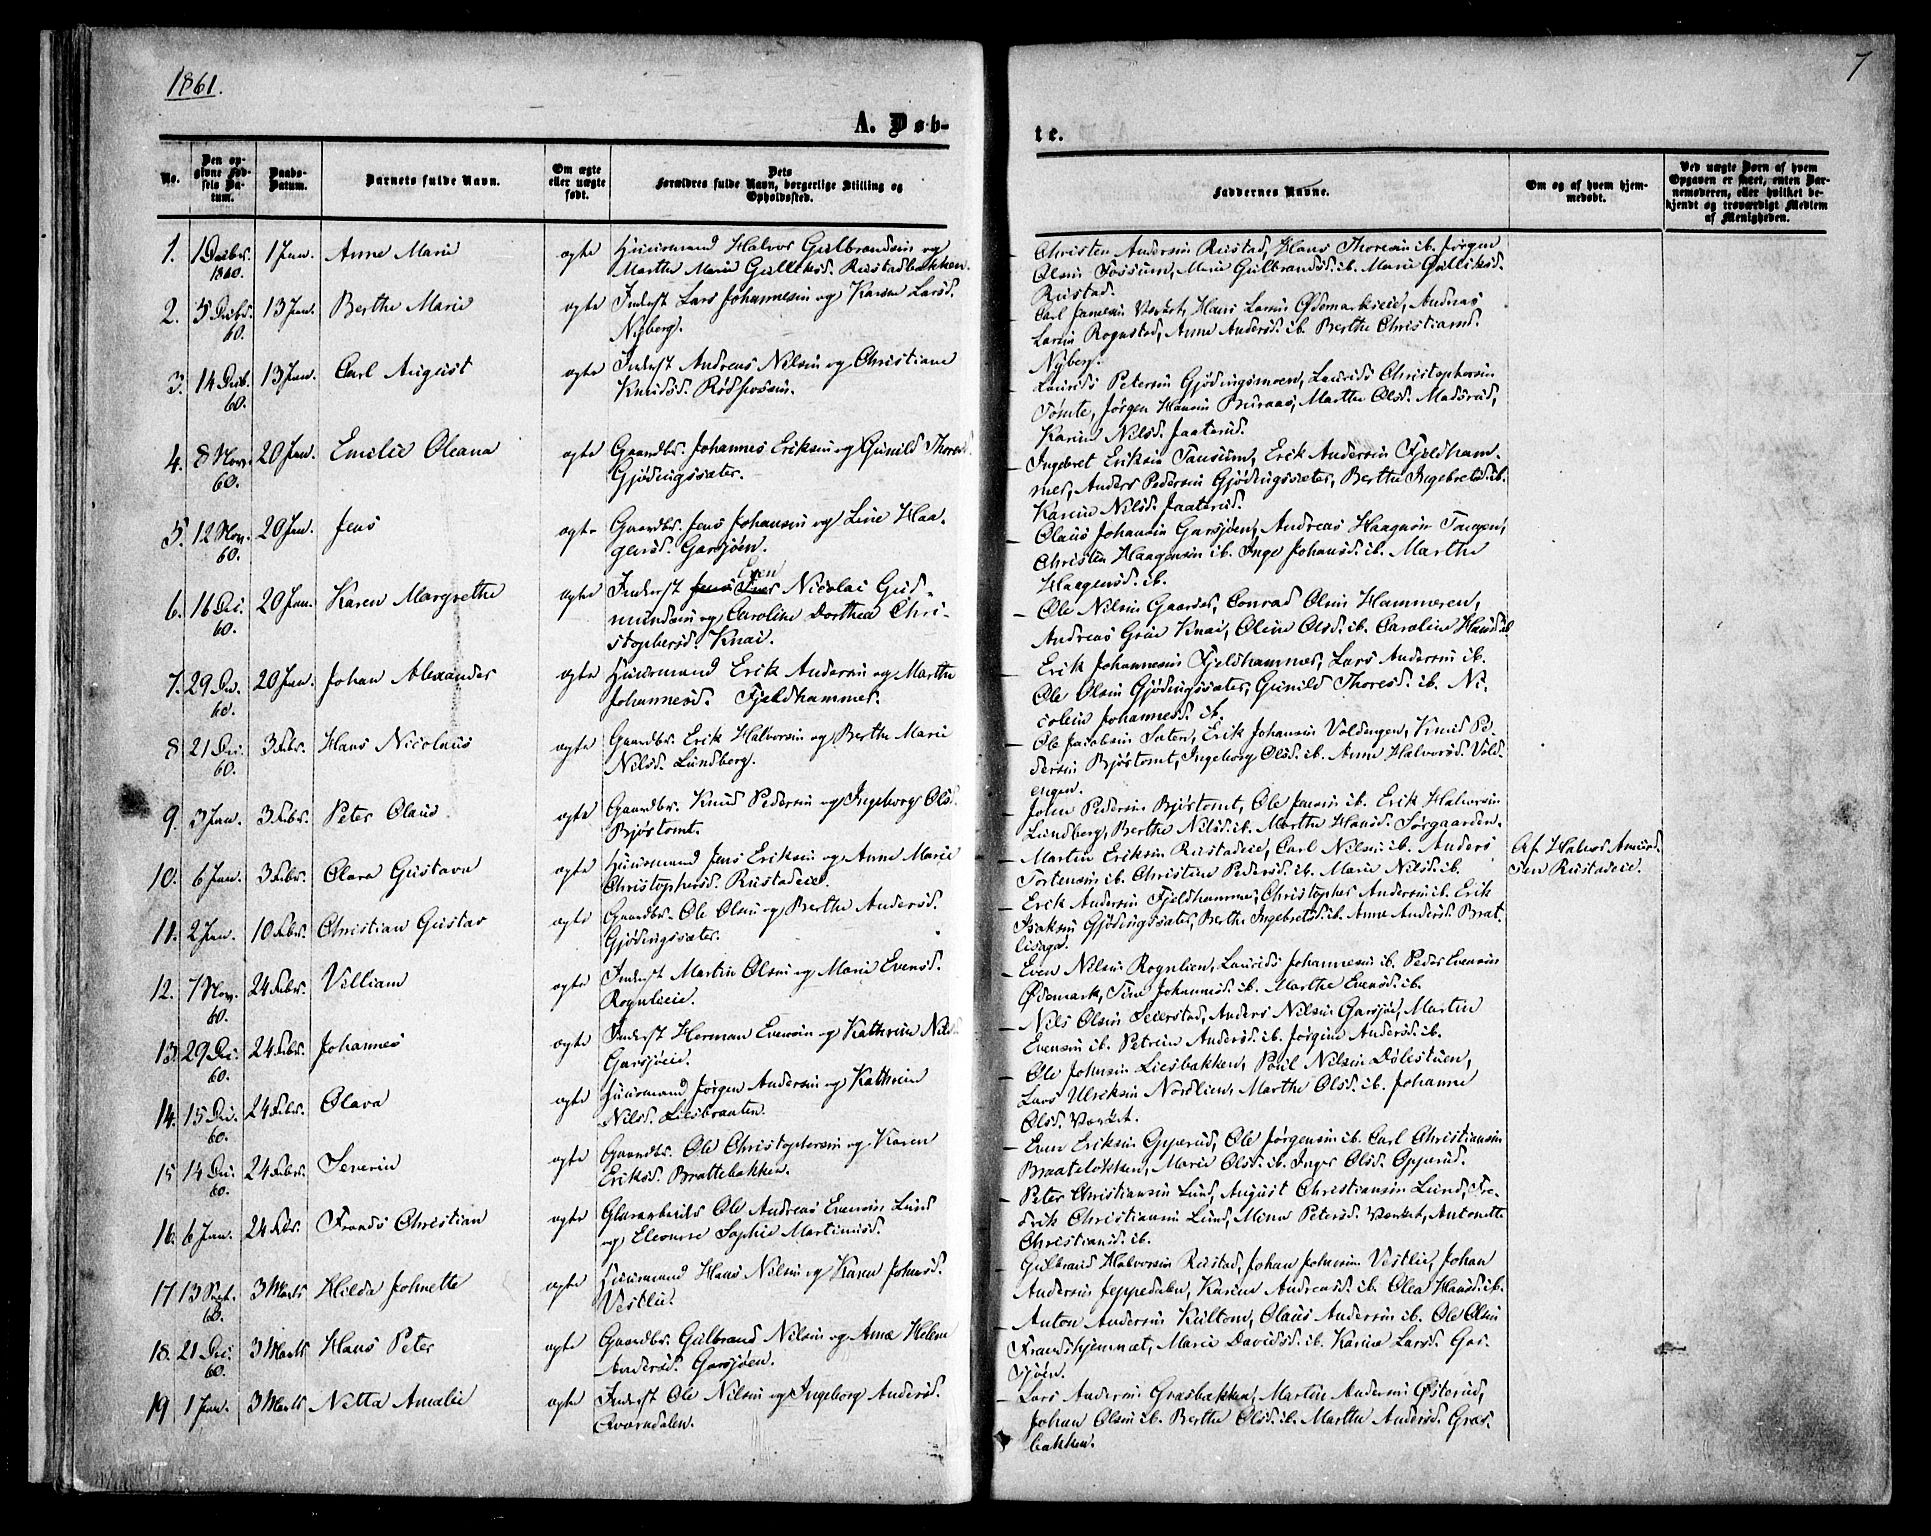 1861.
7
A. Døb-
te.
No.
Den op-
givne Fød-
sels Da-
tum.
Daabs-
Datum.
Barnets fulde Navn.
Om ægte
eller uægte
født.
Dets
Forældres fulde Navn, borgerlige Stilling og
Opholdssted.
Faddernes Navne.
Om og af hvem hjem-
medøbt.
Ved uægte Børn af hvem
Opgaven er skeet, enten Bar-
nemoderen, eller hvilket be-
kjendt og troværdigt Medlem
af Menigheden.
1. 1 Decbr. 1860. 1 Jan. Anne Marie ægte Huusmand Halvor Gulbrandsen og
Marthe Marie Gulliksd. Rustadbakken.
Christen Andersen Rustad, Hans Thoresen ib. Jørgen
Olsen Fossum, Marie Gulbrandsd. ib. Marie Gulliksd.
Rustad.
2. 5 Decbr. 60. 13 Jan. Berthe Marie ægte Inderst Lars Johannesen og Karen Larsd.
Nyberg.
Carl Jansen Værket, Hans Larsen Ødemarkseie, Andreas
Larsen Rognstad, Anne Andersd. ib. Berthe Christiansd.
Nyberg.
3. 14 Decb. 60. 13 Jan. Carl August ægte Inderst Andreas Nilsen og Christiane
Knudsd. Rødfossen.
Laurids Petersen Gjødingsmoen, Laurids Christophersen
Tømte, Jørgen Hansen Buraas, Marthe Olsd. Madsrud,
Karen Nilsd. Jaaterud.
4. 8 Nov. 60. 20 Jan. Emilie Oleana ægte Gaardbr. Johannes Eriksen og Gunild Thoresd.
Gjødingssæter.
Ingebret Eriksen Tansum, Erik Andersen Fjeldham-
mer, Anders Pedersen Gjødingssæter, Berthe Ingebretsd. ib.
Karen Nilsd. Jaaterud.
5. 12 Nov. 60. 20 Jan. Jens ægte Gaardbr. Jens Johansen og Line Haa-
gensd. Garsjøen.
Olaus Johansen Garsjøen, Andreas Haagensen Tangen,
Christen Haagensen ib. Inge Johansd. ib. Marthe
Haagensd. ib.
6. 16 De. 60. 20 Jan. Karen Margrethe ægte Inderst Even Nicolai Gud-
mundsen og Caroline Dorthea Chri-
stophersd. Knai.
Ole Nilsen Gaarder, Conrad Olsen Hammeren,
Andreas Grue Knai, Oline Olsd. ib. Caroline Hansd. ib.
7. 29 De. 60. 20 Jan. Johan Alexander ægte Huusmand Erik Andersen og Marthe
Johannesd. Fjeldhammer.
Erik Johannesen Fjeldhammer, Lars Andersen ib.
Ole Olsen Gjødingssæter, Gunild Thoresd. ib. Ni-
coline Johannesd. ib.
8. 21 De. 60. 3 Febr. Hans Nicolaus ægte Gaardbr. Erik Halvorsen og Berthe Marie
Nilsd. Lundberg.
Ole Jacobsen Sæten, Erik Johansen Voldengen, Knud Pe-
dersen Bjørtomt, Ingeborg Olsd. ib. Anne Halvorsd. Vold-
engen.
9. 3 Jan. 3 Febr. Peter Olaus ægte Gaardbr. Knud Pedersen og Ingeborg Olsd.
Bjørtomt.
John Pedersen Bjørtomt, Ole Jensen ib. Erik Halvorsen
Lundberg, Berthe Nilsd. ib. Marthe Hansd. Sørgaarden.
10. 6 Jan. 3 Febr. Olava Gustava ægte Huusmand Jens Eriksen og Anne Marie
Christophersd. Rustadeie.
Martin Eriksen Rustadeie, Carl Nilsen ib. Anders
Tortensen ib. Christine Pedersd. ib. Marie Nilsd. ib.
Af Halvor Amund-
sen Rustadeie.
11. 2 Jan. 10 Febr. Christian Gustav ægte Gaardbr. Ole Olsen og Berthe Andersd.
Gjødingssæter.
Erik Andersen Fjeldhammer, Christopher Andersen ib. Erik
Isaksen Gjødingssæter, Berthe Ingebretsd. ib. Anne Andersd. Brat-
12. 7 Nov. 60. 24 Febr. Villiam ægte Inderst Martin Olsen og Marie Evensd.
Rognlieie.
Even Nilsen Rognlien, Laurids Johannesen ib. Peder Evensen
Ødemark, Tine Johannesd. ib. Marthe Evensd. ib.
13. 29 De. 60. 24 Febr. Johannes ægte Inderst Herman Evensen og Kathrine Nilsd.
Garsjøeie.
Nils Olsen Seierstad, Anders Nilsen Garsjøe, Martin
Evensen ib. Petrine Andersd. ib. Jørgine Andersd. ib.
14. 15 De. 60. 24 Febr. Olava ægte Huusmand Jørgen Andersen og Kathrine
Nilsd. Liesbraaten.
Ole Johnsen Liesbakken, Poul Nilsen Dølestuen,
Lars Ulriksen Nordlien, Marthe Olsd. ib. Johanne
Olsd. Værket.
15 14 De. 60. 24 Febr. Severin ægte Gaardbr. Ole Christophersen og Karen
Eriksd. Brattebakken.
Even Eriksen Opperud, Ole Jørgensen ib. Carl Christiansen
Braateløkken, Marie Olsd. ib. Inger Olsd. Opperud.
16. 6 Jan. 24 Febr. Frands Christian ægte Glasarbeider Ole Andreas Evensen Lund
og Eleonore Sophie Martinusd.
Peter Christiansen Lund, August Christiansen Lund, Fre-
drik Christiansen Lund, Mina Petersd. Værket, Antonette
Christiansd. ib.
17 13 Sept. 60. 3 Marts Hilda Johnette ægte Huusmand Hans Nilsen og Karen Johnsd.
Vestlie.
Gulbrand Halvorsen Rustad, Johan Johnsen Vestlie, Johan
Andersen Jeppedalen, Karine Andreasd. ib. Olea Hansd. ib.
18. 21 De. 60. 3 Marts Hans Peter ægte Gaardbr. Gulbrand Nilsen og Anne Helene
Andersd. Garsjøen.
Anton Andersen Kultom, Olaus Andersen ib. Ole Olsen
Frandshjemmet, Marie Davidsd. ib. Karine Larsd. Gar-
sjøen.
19 1 Jan. 3 Marts Netta Amalie ægte Inderst Ole Nilsen og Ingeborg Andersd.
Qværndalen.
Lars Andersen Græsbakken, Martin Andersen Østerud,
Johan Olsen ib. Berthe Olsd. ib. Marthe Andersd. Græs-
bakken.